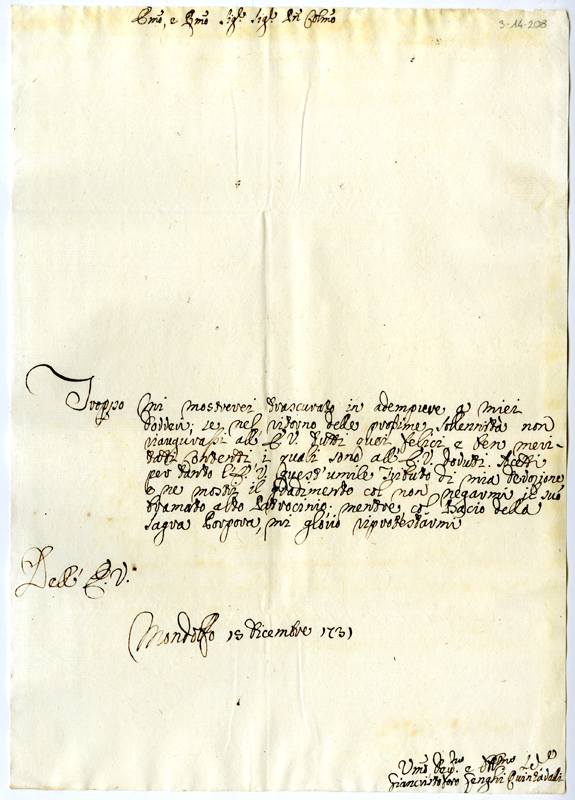 Emo, e Rmo Sigr Sigr Pn Colmo
3-14-208
Troppo mi mostrerei trascurato in adempiere a miei
doveri, se nel ritorno delle prossime solennità non
riaugurassi all' E.V. tutti quei felici e ben meri-
tati contenti i quali sono all' E.V. dovuti. Accetti
per tanto l'E.V. quest'umile tributo di mia devozione
e ne mostri il gradimento col non negarmi il suo
bramato alto Patrocinio; mentre col bacio della
sagra Porpora, mi glorio riprotestarmi
Dell' E.V.
Mondolfo 15 dicembre 1731
Umo e
Giancristoforo Fenghi